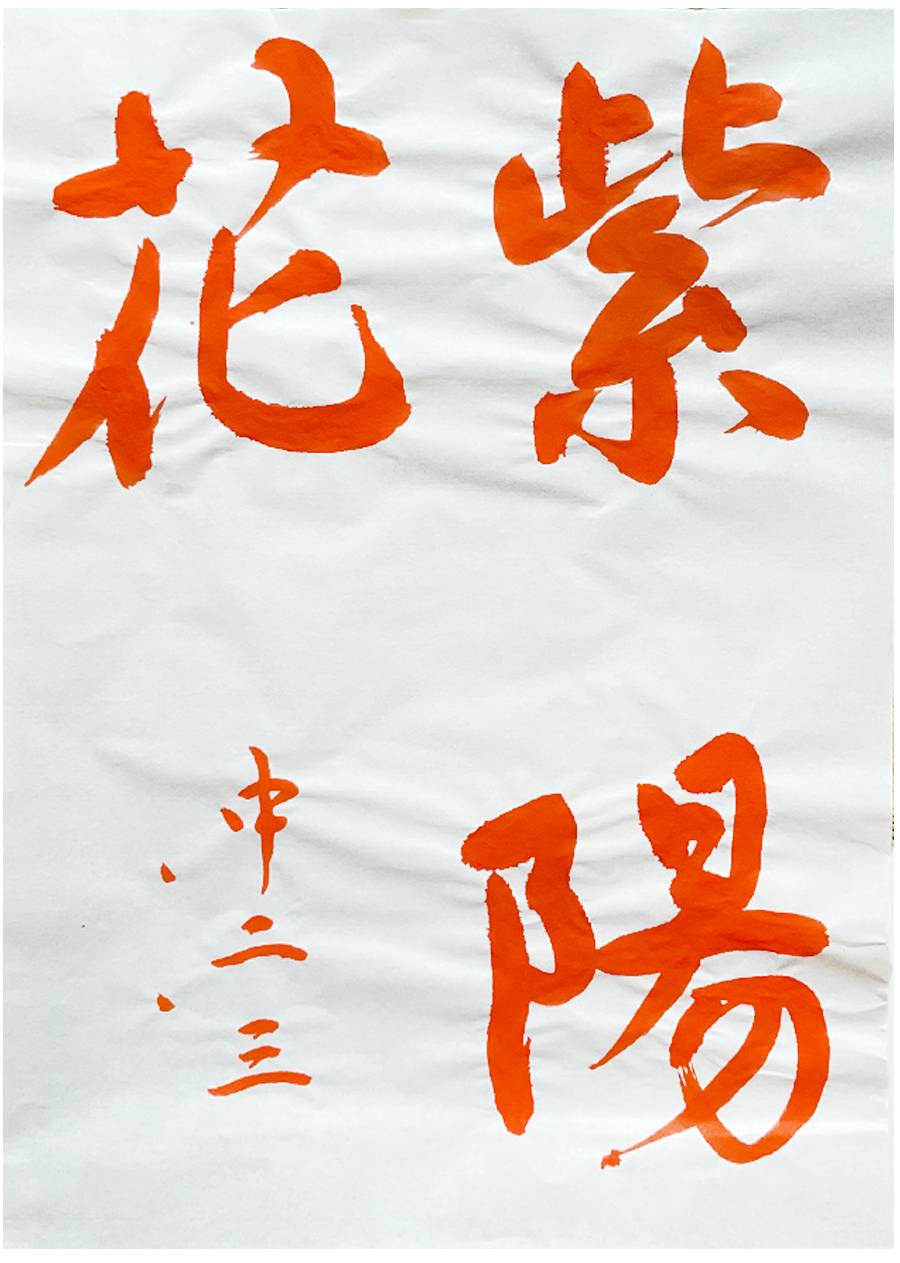 紫陽
花
中二、三、